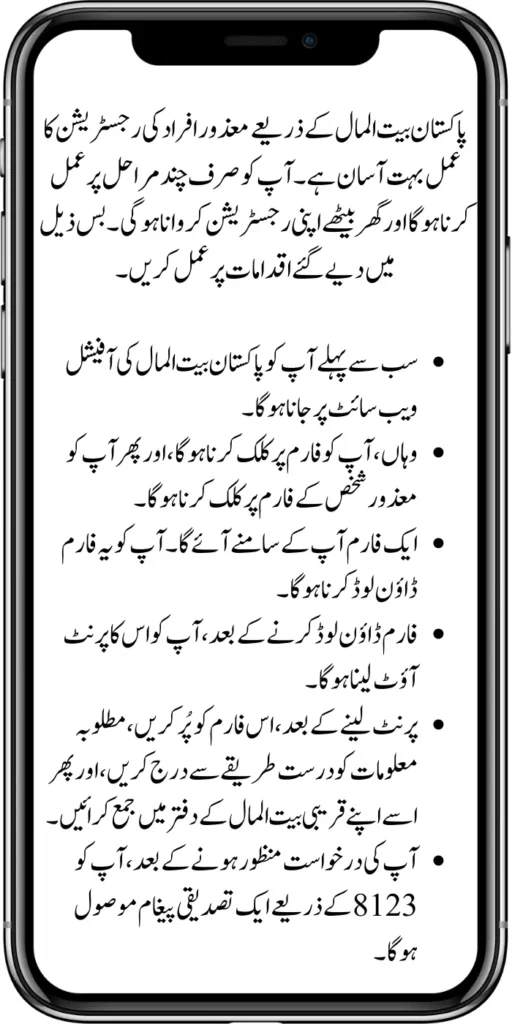 پاکستان بیت المال کے ذریعے معذور افراد کی رجسٹریشن کا
عمل بہت آسان ہے۔ آپ کو صرف چند مراحل پر عمل
کرنا ہو گا اور گھر بیٹھے اپنی رجسٹریشن کروانا ہو گی۔ بس ذیل
میں دیے گئے اقدامات پر عمل کریں۔
• سب سے پہلے آپ کو پاکستان بیت المال کی آفیشل
ویب سائٹ پر جانا ہو گا۔
• وہاں، آپ کو فارم پر کلک کرنا ہو گا، اور پھر آپ کو
معذور شخص کے فارم پر کلک کرنا ہو گا۔
• ایک فارم آپ کے سامنے آئے گا۔ آپ کو یہ فارم
ڈاؤن لوڈ کرنا ہو گا۔
• فارم ڈاؤن لوڈ کرنے کے بعد، آپ کو اس کا پرنٹ
آؤٹ لینا ہو گا۔
• پرنٹ لینے کے بعد، اس فارم کو پُر کریں، مطلوبہ
معلومات کو درست طریقے سے درج کریں، اور پھر
اسے اپنے قریبی بیت المال کے دفتر میں جمع کرائیں۔
• آپ کی درخواست منظور ہونے کے بعد، آپ کو
8123 کے ذریعے ایک تصدیقی پیغام موصول
ہو گا۔